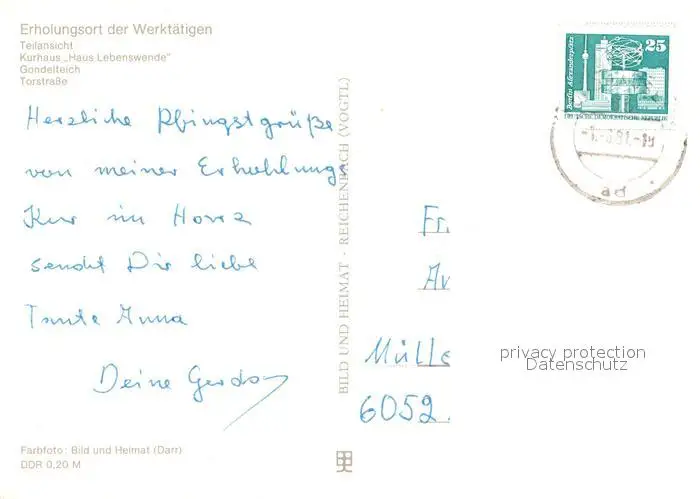 Erholungsort der Werktätigen
Teilansicht
Kurhaus „Haus Lebenswende"
Gondelteich
Torstraße
Herzliche Pfingstgrüße
von meiner Erhohlungs
Kur im
sendet Dir liebe
Tante Anna
Deine
Farbfoto: Bild und Heimat (Darr)
DDR 0,20 M
BILD UND HEIMAT · REICHENBACH (VOGTL)
25
Berlin, Alexanderplatz
DEUTSCHE DEMOKRATISCHE REPUBLIK
ad
Fr.
Av
Mülle
6052
privacy protection
Datenschutz